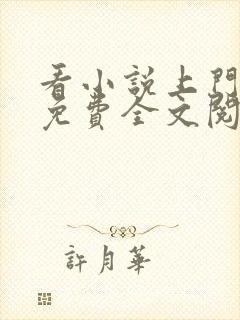 看小說上門
免費全文閱
許月華